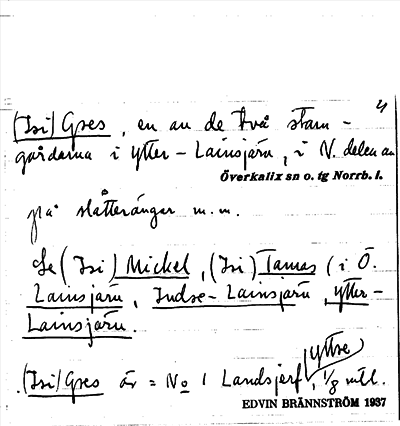 4
(Isi) Gres, en av de två stam-
gårdarna i Ytter-Lainsjärv, i N. delen av
Överkalix sn o. tg Norrb. l.
på slåtterängar m.m.
Se (Isi) Mickel, (Isi) Tamas (i Ö.
Lainsjärv, Indse-Lainsjärv, Ytter-
Lainsjärv.
Yttre
(Isi) Gres är = No 1 Landsjerf, 1/8 mtl.
EDVIN BRÄNNSTRÖM 1937